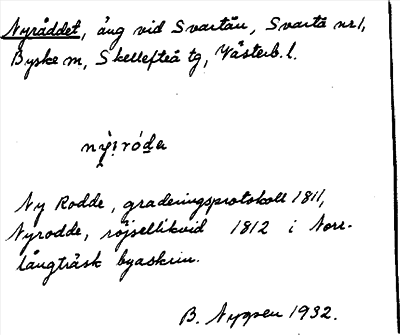 Nyråddet, äng vid Svartån, Svartå nr 1,
Byske sn, Skellefteå tg, Västerb. l.
nỳ:róda
Ny Rodde, graderingsprotokoll 1811,
Nyrodde, röjsellikvid 1812 i Norr-
långträsk byaskrin.
B. Nygren 1932.